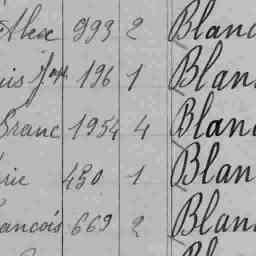 Alex 993 2 Blanc
uis Jos 196 1 Blan
Branc 1954 4 Blanc
ric 450 1 Blan
ancois 669 2 Blan